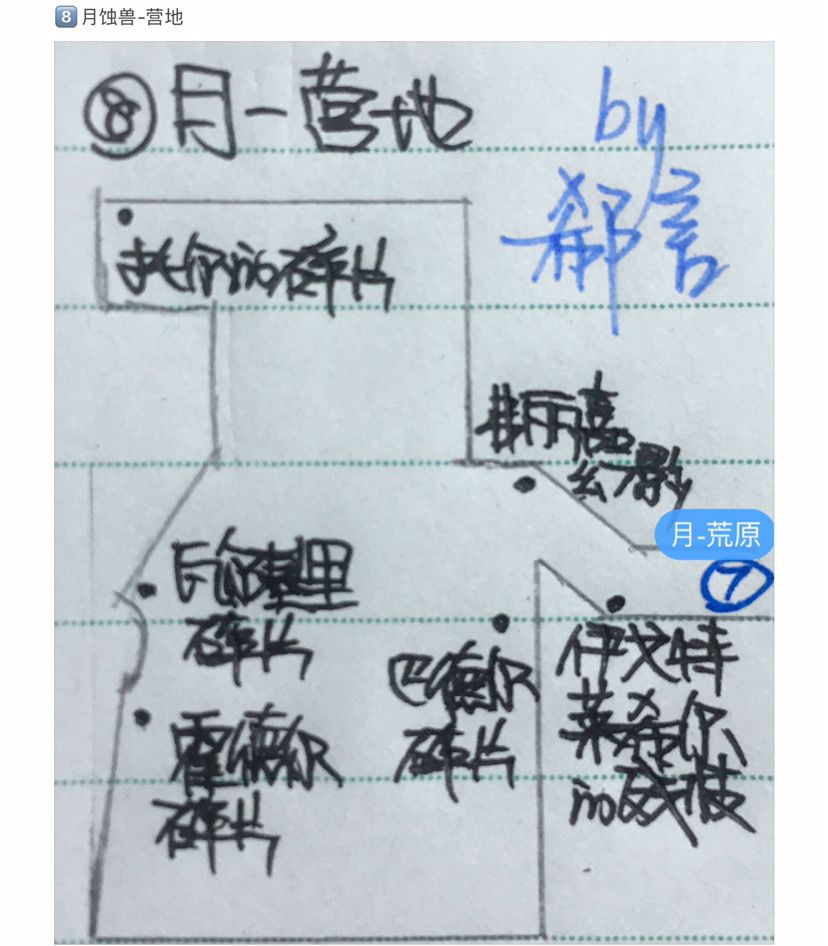 8 月蚀兽-营地
⑧月-营地
by
郗言
托尔的碎片
菲丽喜
幻影
月-荒原
⑦
瓦尔基里
碎片
巴德尔
碎片
伊戈特
莱希尔
的
霍德尔
碎片